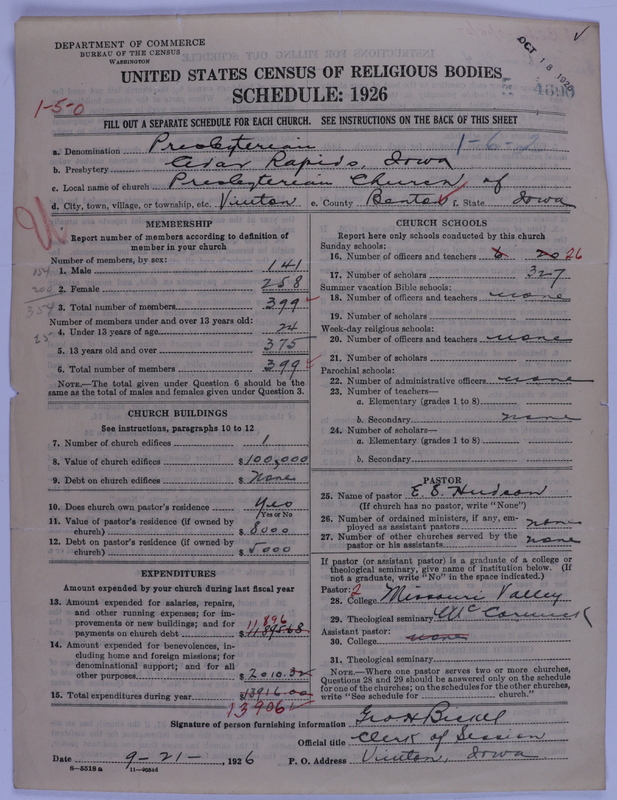 DEPARTMENT OF COMMERCE
BUREAU OF THE CENSUS
WASHINGTON
OCT 18 1926
UNITED STATES CENSUS OF RELIGIOUS BODIES
SCHEDULE: 1926
1-5-0
FILL OUT A SEPARATE SCHEDULE FOR EACH CHURCH. SEE INSTRUCTIONS ON THE BACK OF THIS SHEET
1-6-2
a. Denomination Presbyterian
b. Presbytery Cedar Rapids, Iowa
c. Local name of church Presbyterian Church of
d. City, town, village, or township, etc. Vinton e. County Benton f. State Iowa
MEMBERSHIP
Report number of members according to definition of
member in your church
Number of members, by sex:
1. Male 141
2. Female 258
3. Total number of members 399
Number of members under and over 13 years old:
4. Under 13 years of age 24
5. 13 years old and over 375
6. Total number of members 399
NOTE.—The total given under Question 6 should be the
same as the total of males and females given under Question 3.
CHURCH BUILDINGS
See instructions, paragraphs 10 to 12
7. Number of church edifices 1
8. Value of church edifices $100,000
9. Debt on church edifices $ None
10. Does church own pastor's residence Yes
Yes or No
11. Value of pastor's residence (if owned by
church) $ 8000
12. Debt on pastor's residence (if owned by
church) $ 5000
EXPENDITURES
Amount expended by your church during last fiscal year
13. Amount expended for salaries, repairs,
and other running expenses; for im-
provements or new buildings; and for 11,896
payments on church debt $ 11895.68
14. Amount expended for benevolences, in-
cluding home and foreign missions; for
denominational support; and for all
other purposes $ 2010.32
15. Total expenditures during year $13916.00
13906
CHURCH SCHOOLS
Report here only schools conducted by this church
Sunday schools:
16. Number of officers and teachers 6 20 26
17. Number of scholars 327
Summer vacation Bible schools:
18. Number of officers and teachers none
19. Number of scholars
Week-day religious schools:
20. Number of officers and teachers none
21. Number of scholars
Parochial schools:
22. Number of administrative officers none
23. Number of teachers—
a. Elementary (grades 1 to 8)
b. Secondary none
24. Number of scholars—
a. Elementary (grades 1 to 8)
b. Secondary
PASTOR
25. Name of pastor E. B. Hudson
(If church has no pastor, write "None")
26. Number of ordained ministers, if any, em-
ployed as assistant pastors none
27. Number of other churches served by the
pastor or his assistants none
If pastor (or assistant pastor) is a graduate of a college or
theological seminary, give name of institution below. (If
not a graduate, write "No" in the space indicated.)
Pastor: 2
28. College Missouri Valley
29. Theological seminary McCormick
Assistant pastor:
30. College none
31. Theological seminary
NOTE.—Where one pastor serves two or more churches,
Questions 28 and 29 should be answered only on the schedule
for one of the churches; on the schedules for the other churches,
write "See schedule for church."
Signature of person furnishing information Geo H Bickel
Official title Clerk of Session
Date 9-21-, 1926 P. O. Address Vinton, Iowa
8—5518a 11—9054d